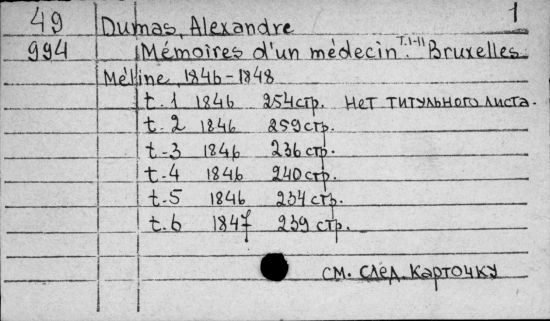 1
49 Dumas, Alexandre
994 Mémoires d'un médecin. T.1-11 Bruxelles
Méline, 1846-1848
t. 1 1846 254 стр. Нет титульного листа.
t. 2 1846 259 стр.
t. 3 1846 236 стр.
t. 4 1846 240 стр.
t. 5 1846 234 стр.
t. 6 1847 239 стр.
см. след. карточку